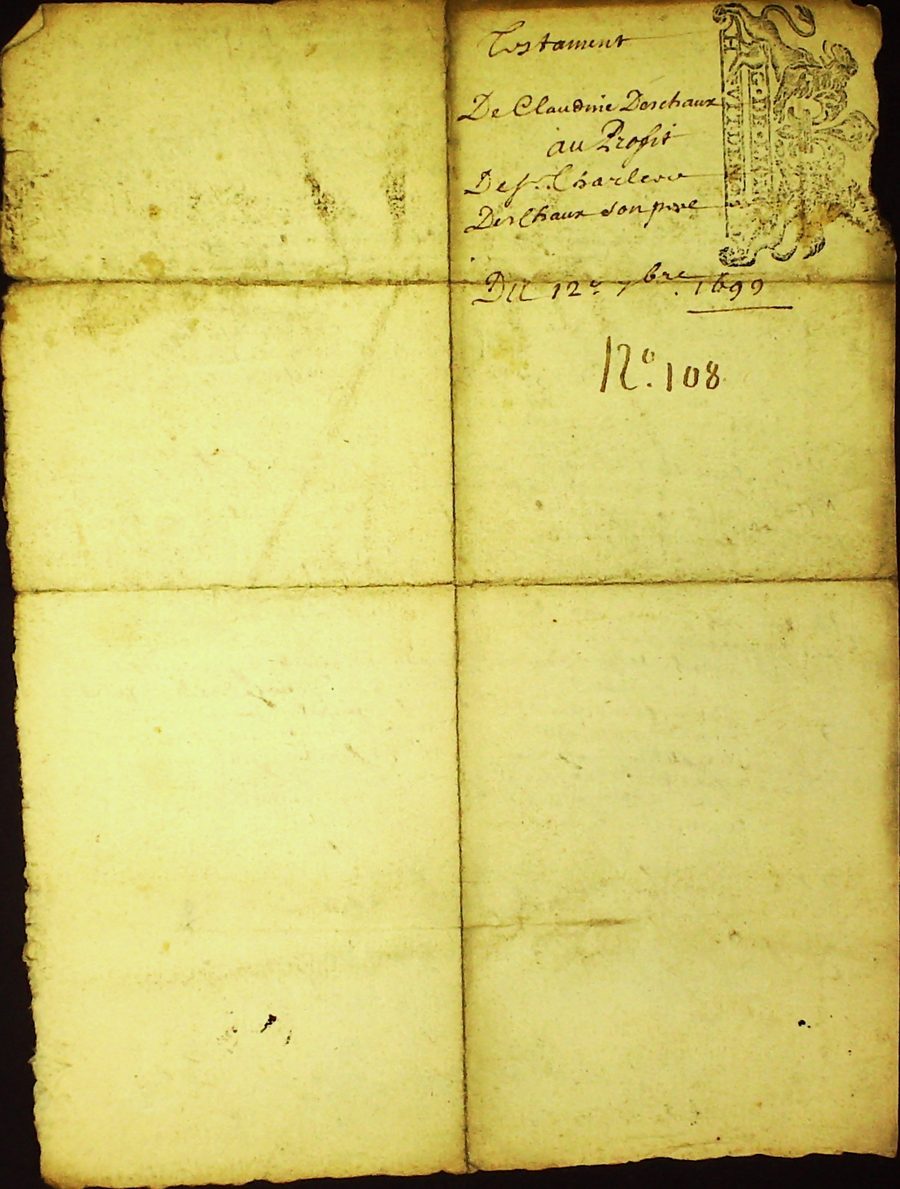 Testament
De Claudine Deschaux
au Profit
De Sr.
Deschaux son pere
Du 12e 7bre. 1699
No. 108